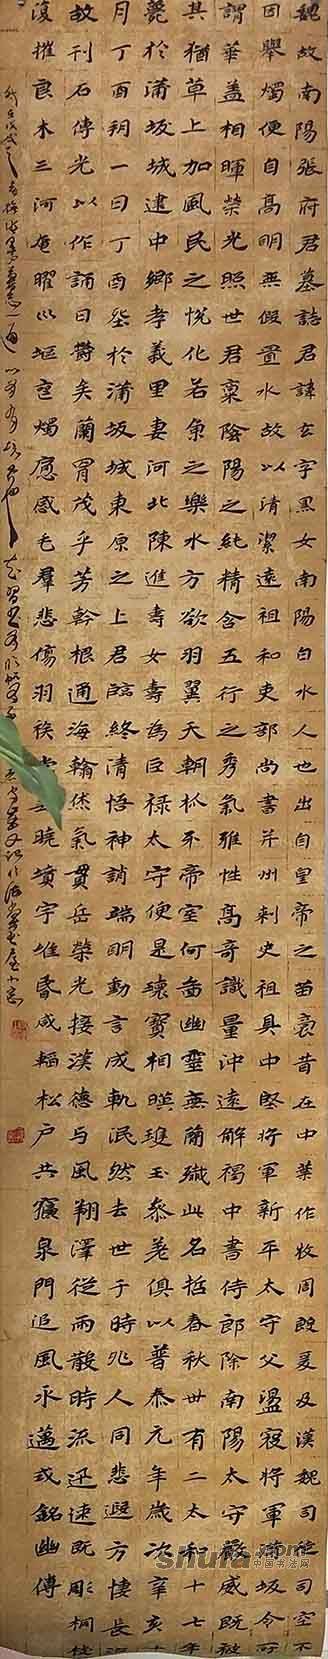 魏故南陽張府君墓誌君諱玄字黑女南陽白水人也出自皇帝之苗裔昔在中葉作牧周殷爰及漢魏司徒司空不
因舉燭便自高明無假置水故以清潔遠祖和吏部尚書并州刺史祖具中堅將軍新平太守父盪寇將軍蒲坂令所
謂華蓋相暉榮光照世君稟陰陽之純精含五行之秀氣雅性高奇識量沖遠解褐中書侍郎除南陽太守嚴威既被
其猶草上加風民之悅化若魚之樂水方欲羽翼天朝抓牙帝室何啚幽靈無簡殲此名哲春秋卅有二太和十七年
薨於蒲坂城建中鄉孝義里妻河北陳進壽女壽為巨祿太守便是瓌寶相暎瓊玉參差俱以普泰元年歲次辛亥十
月丁酉朔一日丁酉塟於蒲坂城東原之上君臨終清悟神誚端明動言成軌泯然去世于時兆人同悲遐方悽長泣
故刊石傳光以作誦曰鬱矣蘭胄茂乎芳幹根通海翰休氣貫岳榮光接漢德与風翔澤從雨散時流迅速既彫桐枝
復摧良木三河奄曜巛堀息燭應感毛群悲傷羽族曉墳宇唯昏咸輀松戶共寢泉門追風永邁式銘幽傳
shufa.com
中国书法网